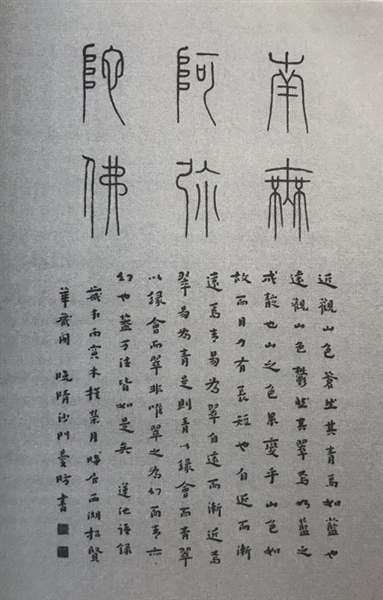 南無
阿弥
陀佛
近觀山色蒼然其青焉如藍也
遠觀山色鬱然其翠焉如藍之
成靛也山之色果變乎山色如
故而目力有長短也自近而漸
遠焉青易為翠自遠而漸近焉
翠易為青是則青以緣會而青翠
以緣會而翠非唯翠之為幻而青亦
幻也蓋万法皆如是矣 蓮池語錄
歲在丙寅木槿榮月晦居西湖招賢
華嚴閣 晚晴沙門曇昉書